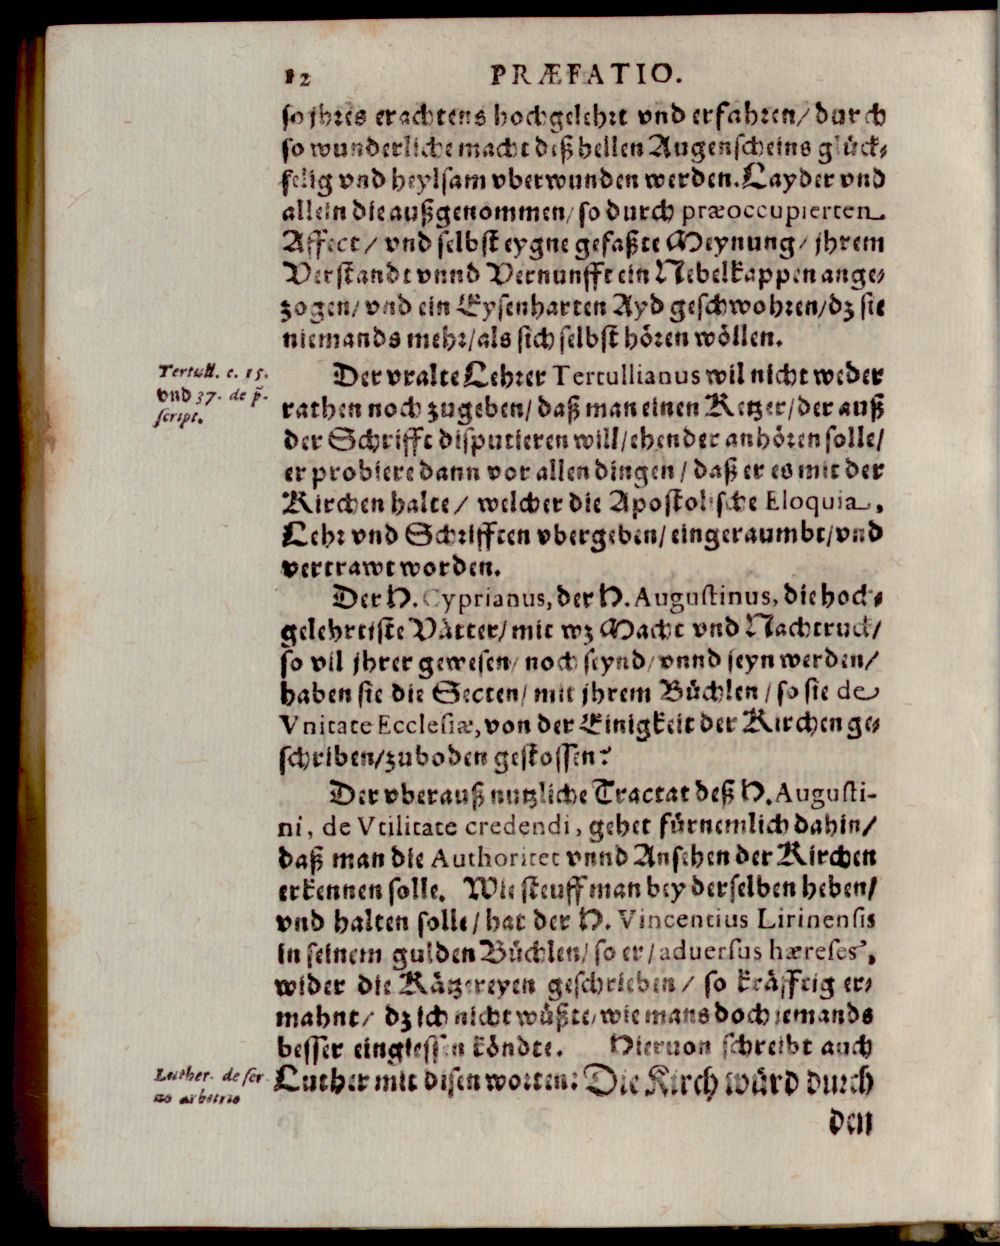 12 PRÆFATIO.
so jhres erachtens hochgelehrt vnd erfahren/ durch
so wunderliche macht deß hellen Augenscheins glück-
selig vnd heylsam vberwunden werden. Layder vnd
allein die außgenommen/ so durch præoccupierten
Affect/ vnd selbst eygne gefaßte Meynung/ jhrem
Verstandt vnnd Vernunfft ein Nebelkappen ange-
zogen/ vnd ein Eysenharten Ayd geschwohren/ dz sie
niemands mehr/ als sich selbst hören wöllen.
Tertull. c. 15.
vnd 37. de p̃-
script.
Der vralte Lehrer Tertullianus wil nicht weder
rathen noch zugeben/ daß man einen Ketzer/ der auß
der Schrifft disputieren will/ ehender anhören solle/
er probiere dann vor allen dingen/ daß er es mit der
Kirchen halte/ welcher die Apostolische Eloquia,
Lehr vnd Schrifften vbergeben/ eingeraumbt/ vnd
vertrawt worden.
Der H. Cyprianus, der H. Augustinus, die hoch-
gelehrtiste Vätter/ mit wz Macht vnd Nachtruck/
so vil jhrer gewesen/ noch seynd/ vnnd seyn werden/
haben sie die Secten/ mit jhrem Büchlen/ so sie de
Vnitate Ecclesiæ, von der Einigkeit der Kirchen ge-
schriben/ zuboden gestossen?
Der vberauß nutzliche Tractat deß H. Augusti-
ni, de Vtilitate credendi, gehet fürnemlich dahin/
daß man die Authoritet vnnd Ansehen der Kirchen
erkennen solle. Wie steuff man bey derselben heben/
vnd halten solle/ hat der H. Vincentius Lirinensis
in seinem gulden Büchlen/ so er/ aduersus hæreses,
wider die Kätzereyen geschrieben/ so kräfftig er-
mahnt/ dz ich nicht wüßte/ wie mans doch jemands
besser eingiessen köndte. Hieruon schreibt auch
Luther. de ser-
uo arbitrio
Luther mit disen worten: Die Kirch würd durch
den